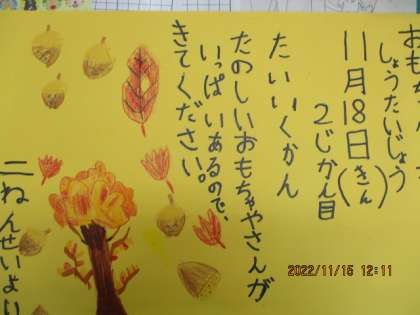 おもちゃ
しょうたいじょう
11月18日(きん)
2じかん目
たいいくかん
たのしいおもちゃやさんが
いっぱいあるので、
きてください。
二ねんせいより
2022/11/15 12:11